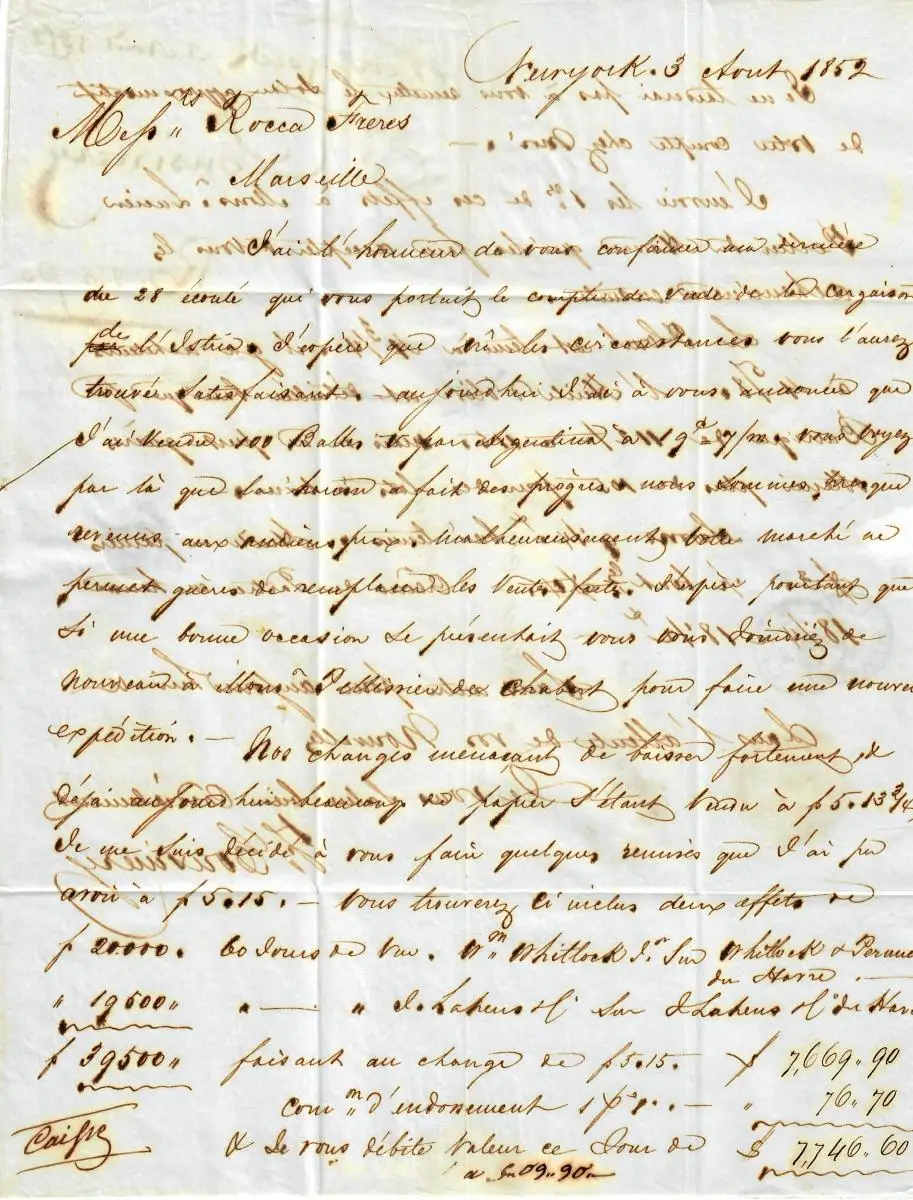 Newyork. 3 Aout 1852
Mess.rs Rocca Frères
Marseille
J'ai l'honneur de vous confirmer ma dernière
du 28 écoulé qui vous portait le compte de vente de la cargaison
de l'Istria. J'espère que vû les circonstances vous l'aurez
trouvée satisfaisant - aujourdhui J'ai à vous annoncer que
J'ai vendu 100 Balles par Argentina à 9 7/m. vous voyez
par là que la a fait des progrès, nous sommes presque
revenus aux anciens prix. Malheureusement votre marché ne
permet guères de remplacer les ventes faites. J'espère pourtant que
Si une bonne occasion se présentait vous vous Joindriez de
nouveau à Mons.r Pellissier de Chabert pour faire une nouvel
expédition. — Nos changes menaçant de baisser fortement, &
déjà aujourdhui beaucoup de papier s'étant vendu à f 5.13 3/4
Je me suis décidé à vous faire quelques remises que J'ai pu
avoir à f 5.15. — Vous trouverez ci inclus deux effets de
f 20.000. 60 Jours de vue. Wm Whitlock Jr. Sur Whitlock &
du Havre. —
" 19500 " " — " J. Lahens & C.o Sur J. Lahens & C.o du Hav
f 39500 " faisant au change de f 5.15. $ 7,669.90
com.m d'endossement 1 p% . — " 76.70
Caisse & Je vous débite valeur ce Jour de $ 7,746.60